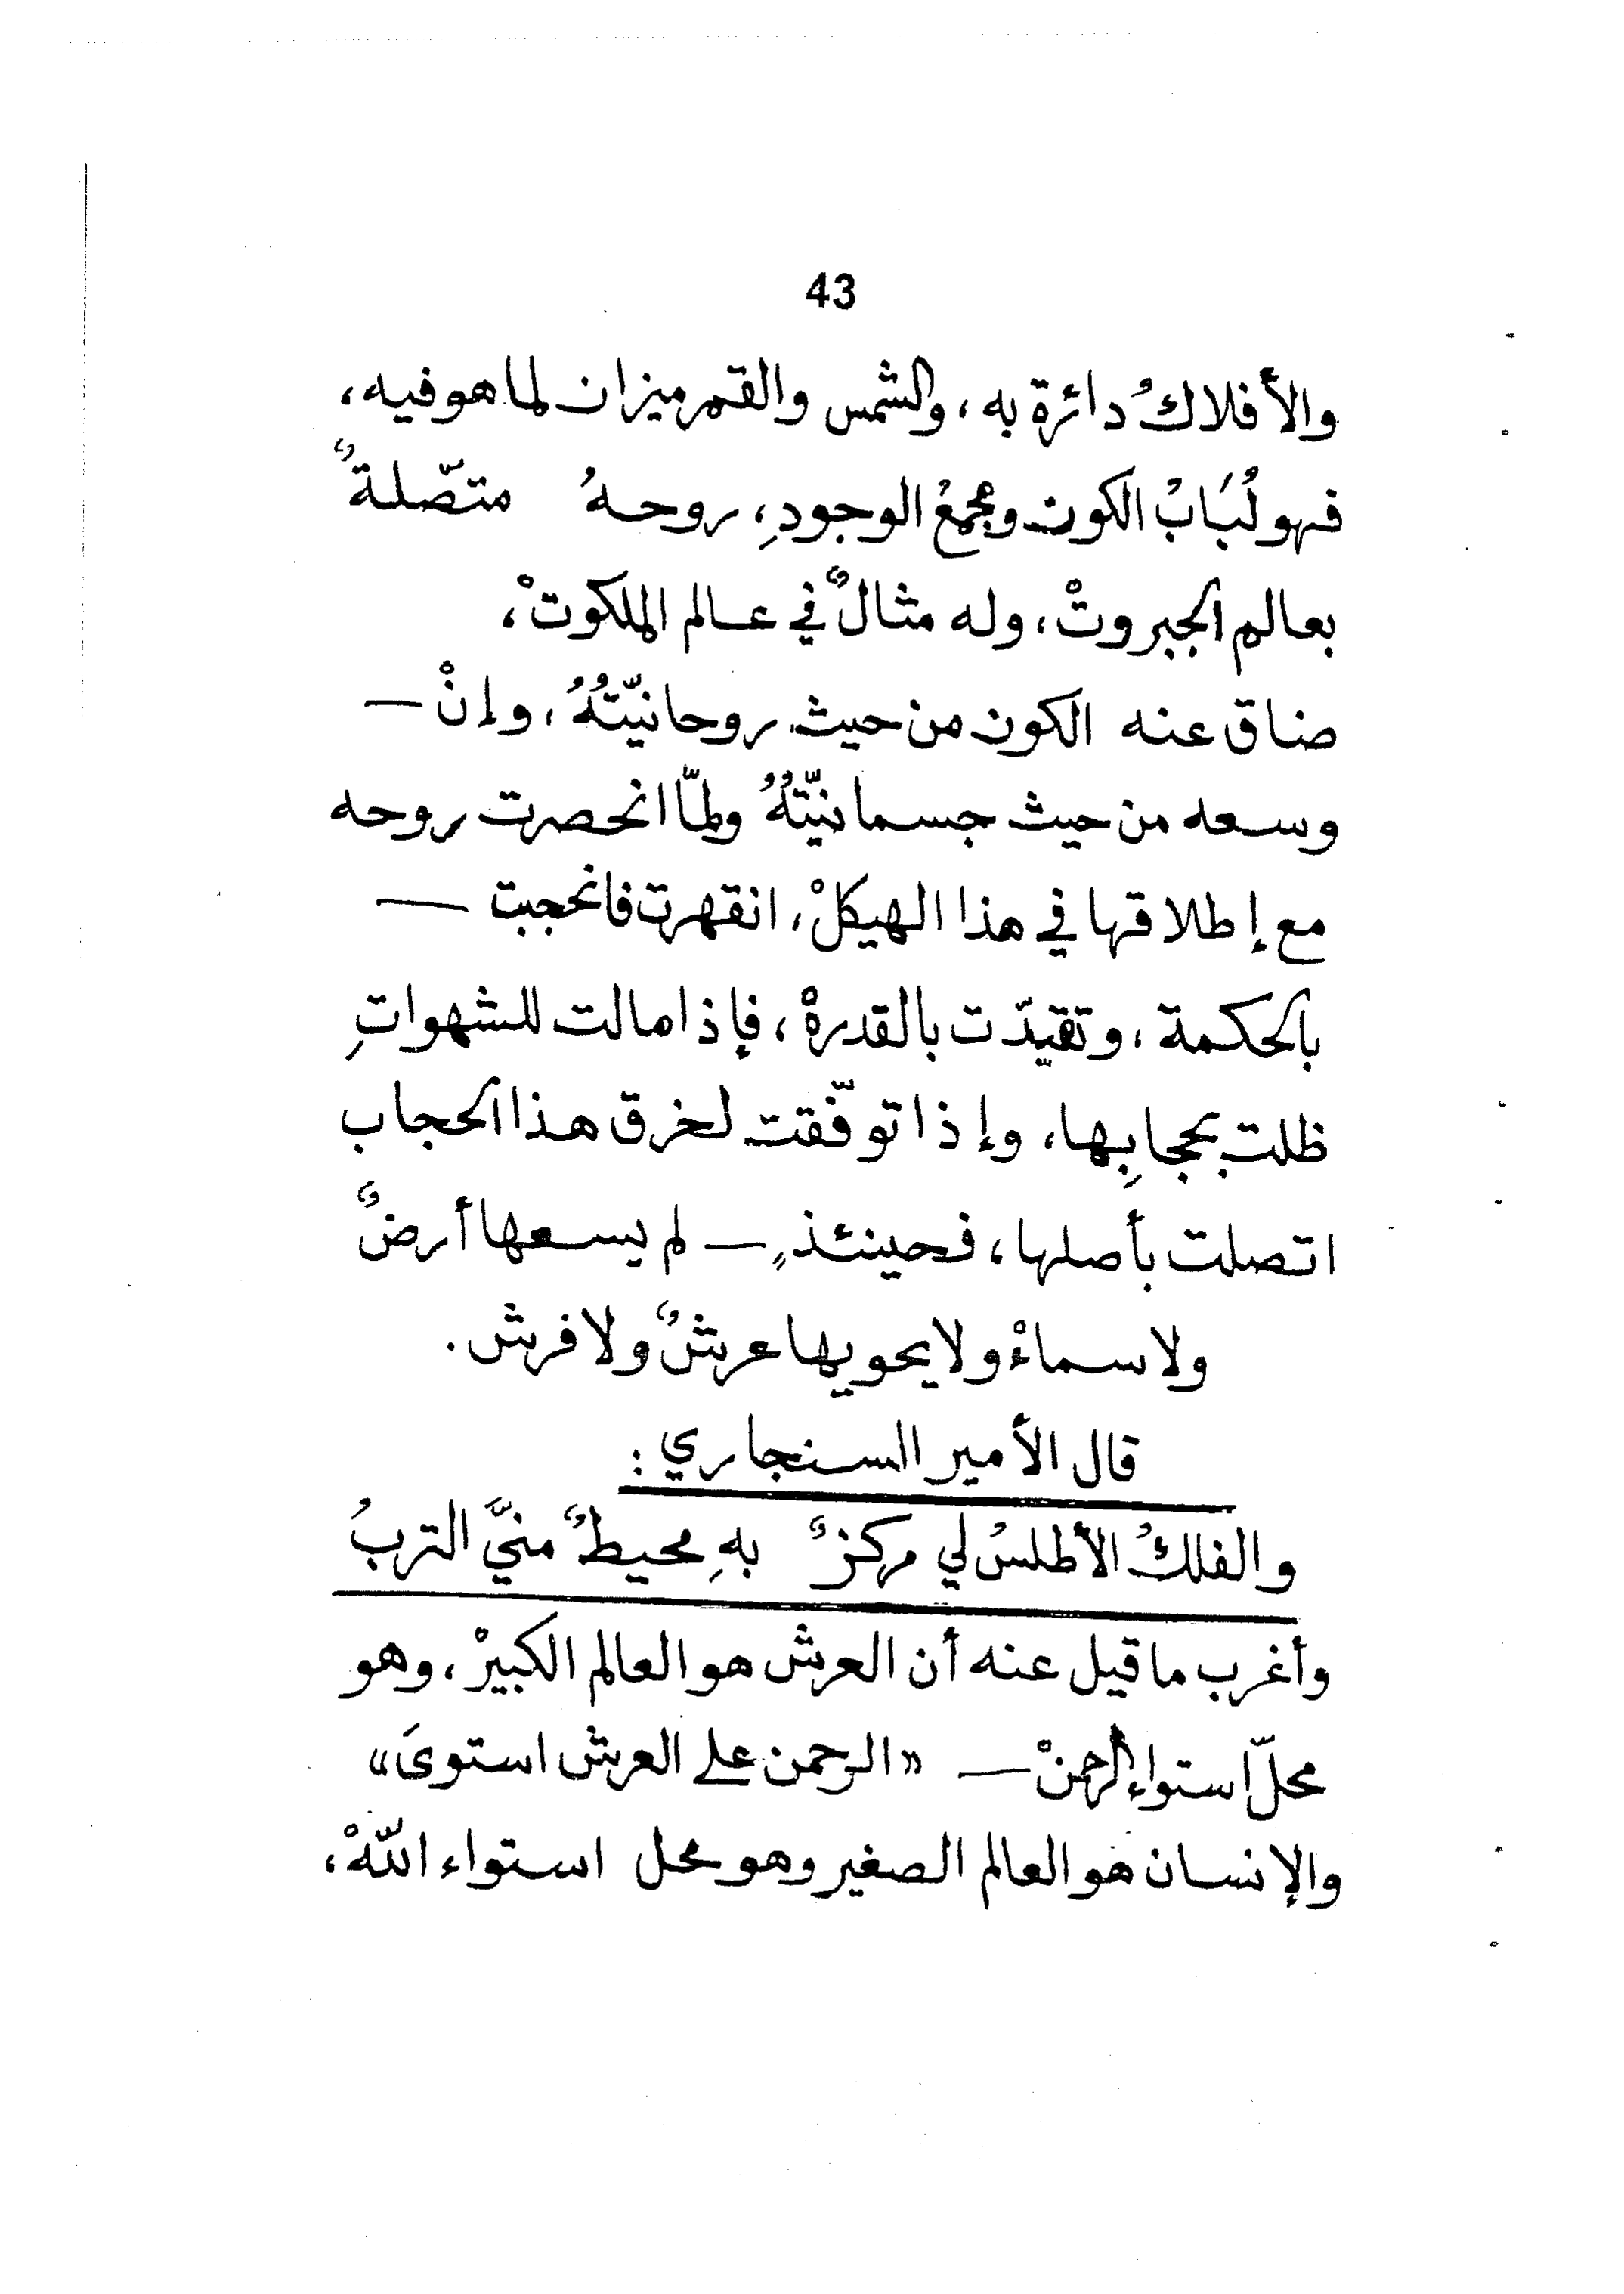 43
والأفلاكُ دائرة به، والشمس والقمر ميزان لما هو فيه،
فهو لُبَابُ الكون ومجمعُ الوجودِ، روحهُ متصّلةٌ
بعالم الجبروتْ، وله مثالٌ في عالم الملكوتْ،
ضاق عنه الكون من حيث روحانيّتُهُ، وإنْ —
وسعه من حيث جسمانيّتُهُ ولمّا انحصرت روحه
مع إطلاقها في هذا الهيكلْ، انقهرت فانحجبت —
بالحكمة، وتقيّدت بالقدرةْ، فإذا مالت للشهواتِ
ظلت بحجابِها، وإذا توفّقت لخرق هذا الحجاب
اتصلت بأصلها، فحينئذٍ — لم يسعها أرضٌ
ولا سماءْ ولا يحويها عرشٌ ولا فرش.
قال الأمير السنجاري:
والفلكُ الأطلسُ لي مركزٌ بهِ محيطٌ منيَّ التربُ
وأغرب ما قيل عنه أن العرش هو العالم الكبيرْ، وهو
محلّ استواء الرحمنْ — «الرحمن على العرش استوىَ»
والإنسان هو العالم الصغير وهو محل استواء اللّهْ،